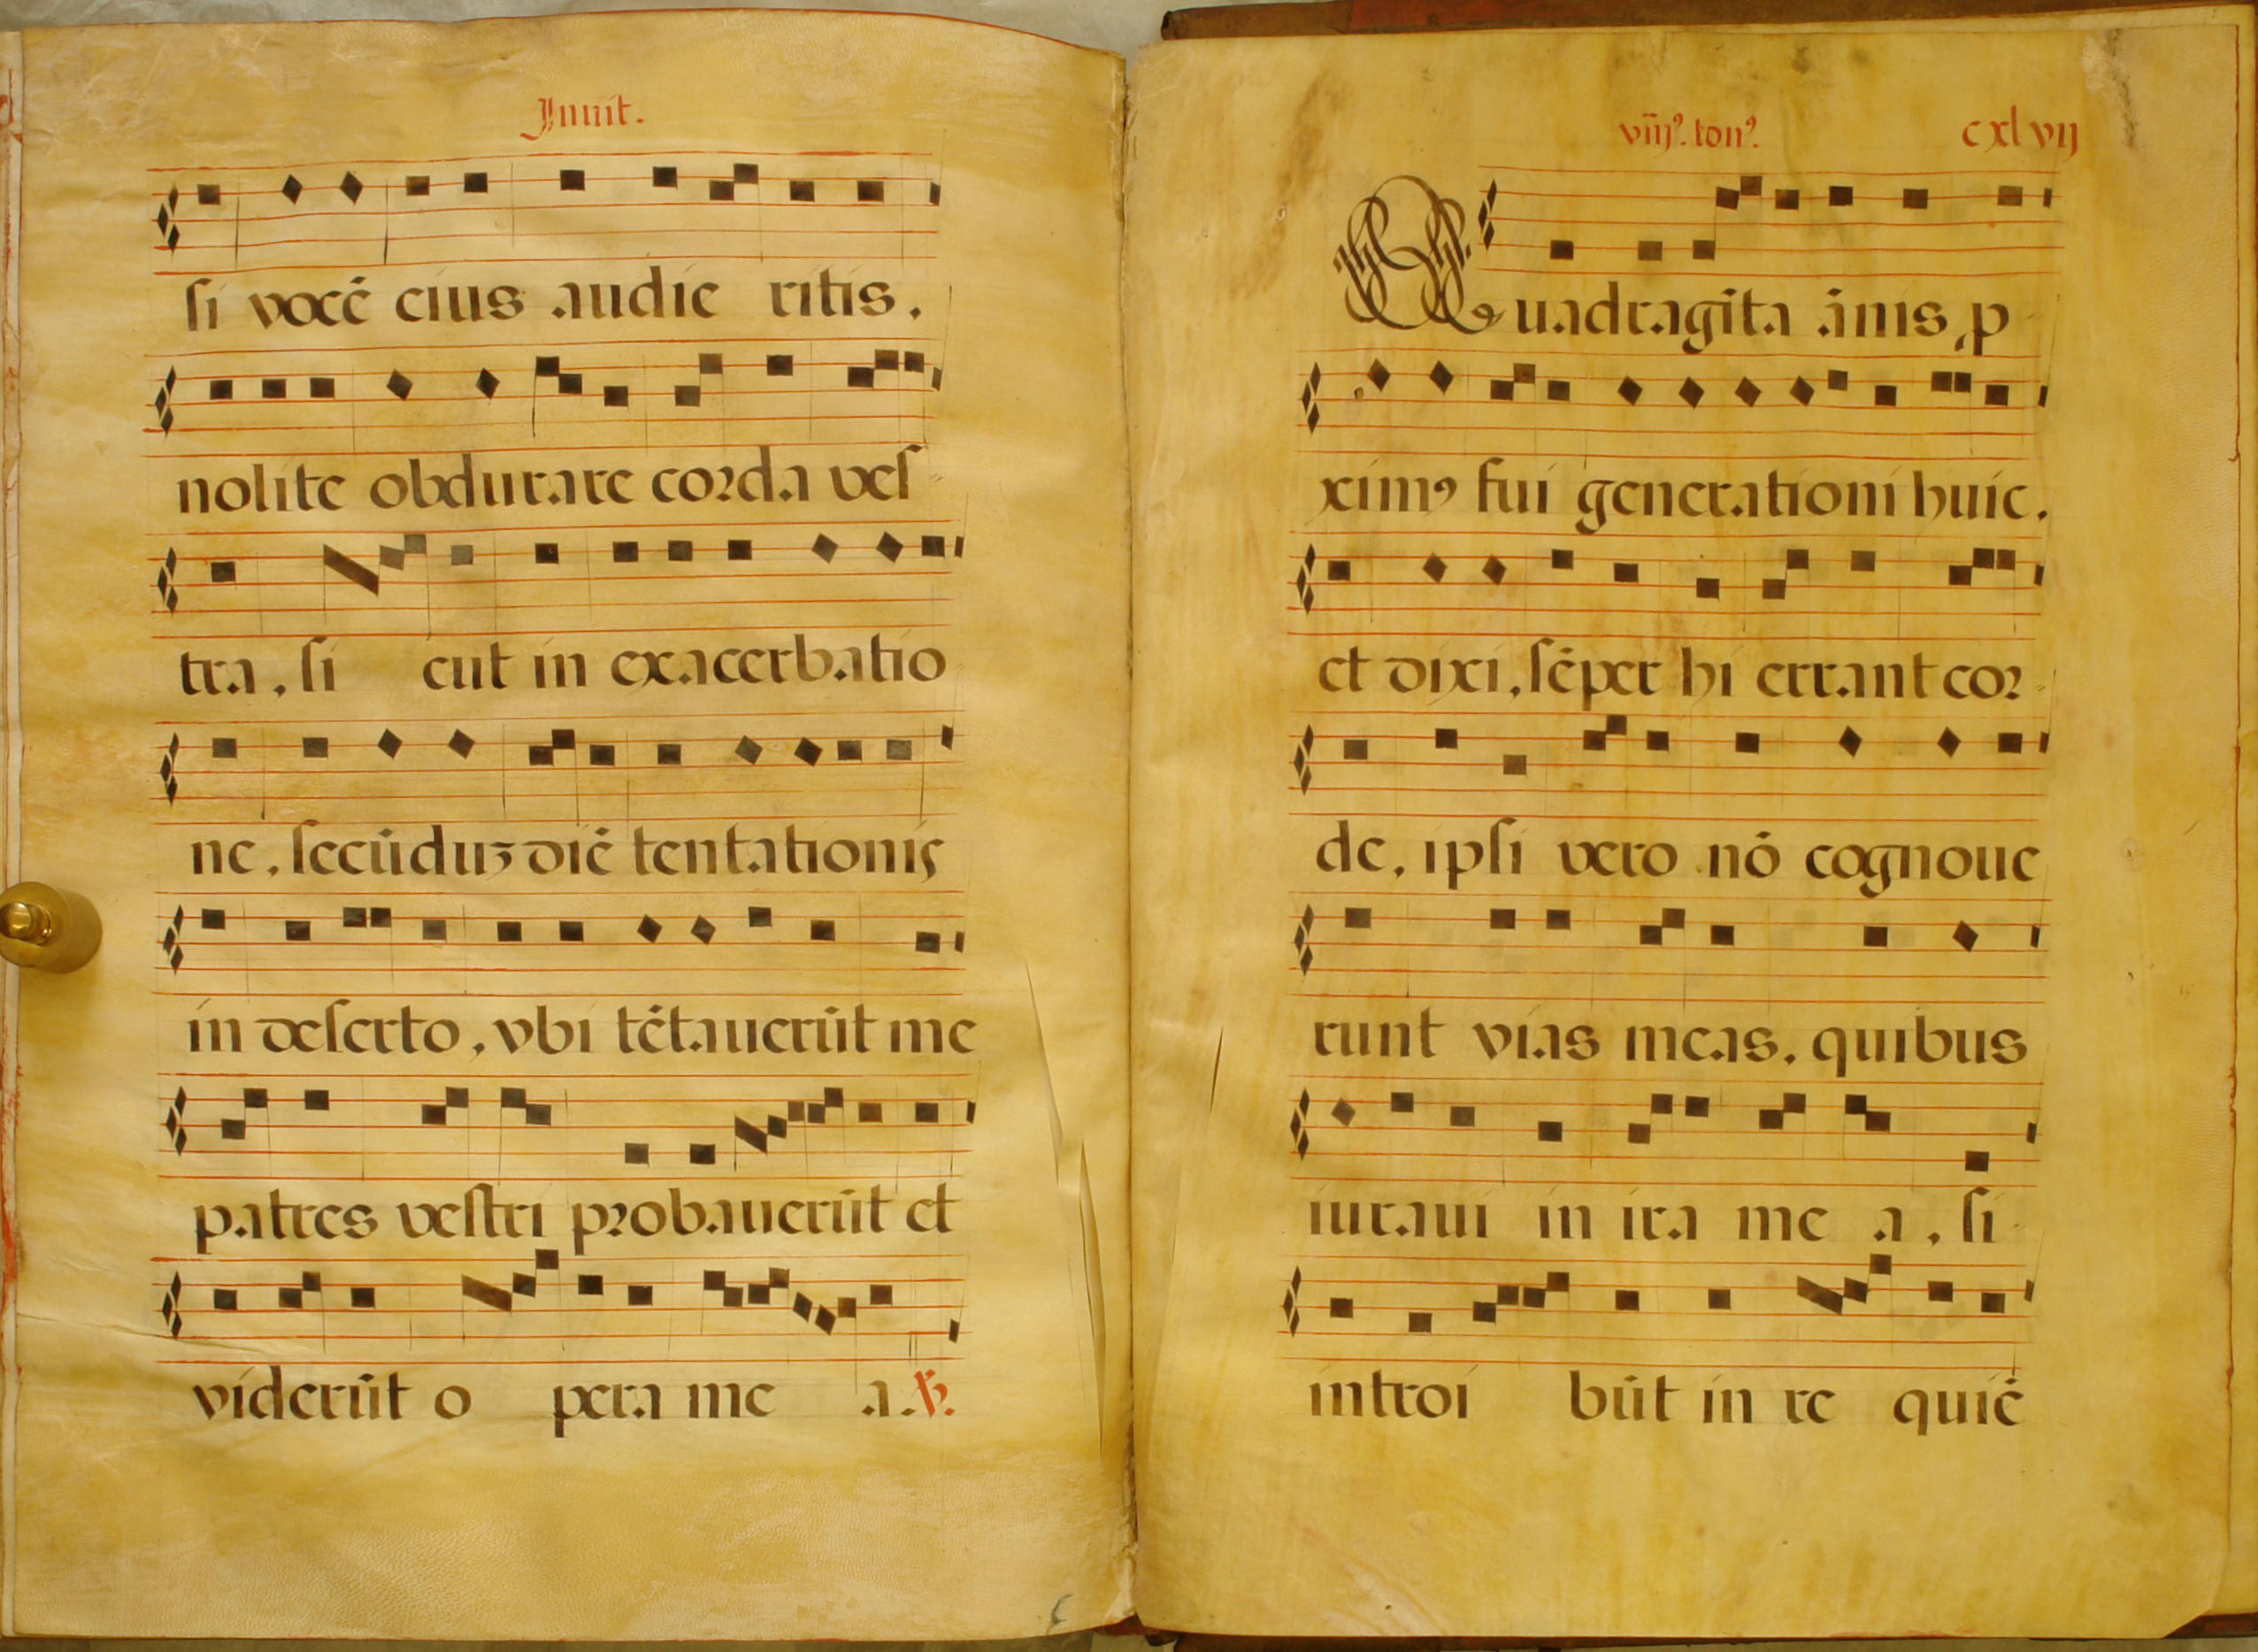 Inuit.
si vocē eius audie ritis.
nolite obdurare corda ves
tra, si cut in exacerbatio
ne, secūduꝫ diē tentationis
in deserto, vbi tētauerūt me
patres vestri probauerūt et
viderūt o pera me a. ℣.
viij⁹. ton⁹. cxlvij
Quadragīta ānis ꝓ
xim⁹ fui generationi huic.
et dixi, sēper hi errant cor
de, ipsi vero nō cognoue
runt vias meas, quibus
iuraui in ira me a, si
introi būt in re quiē